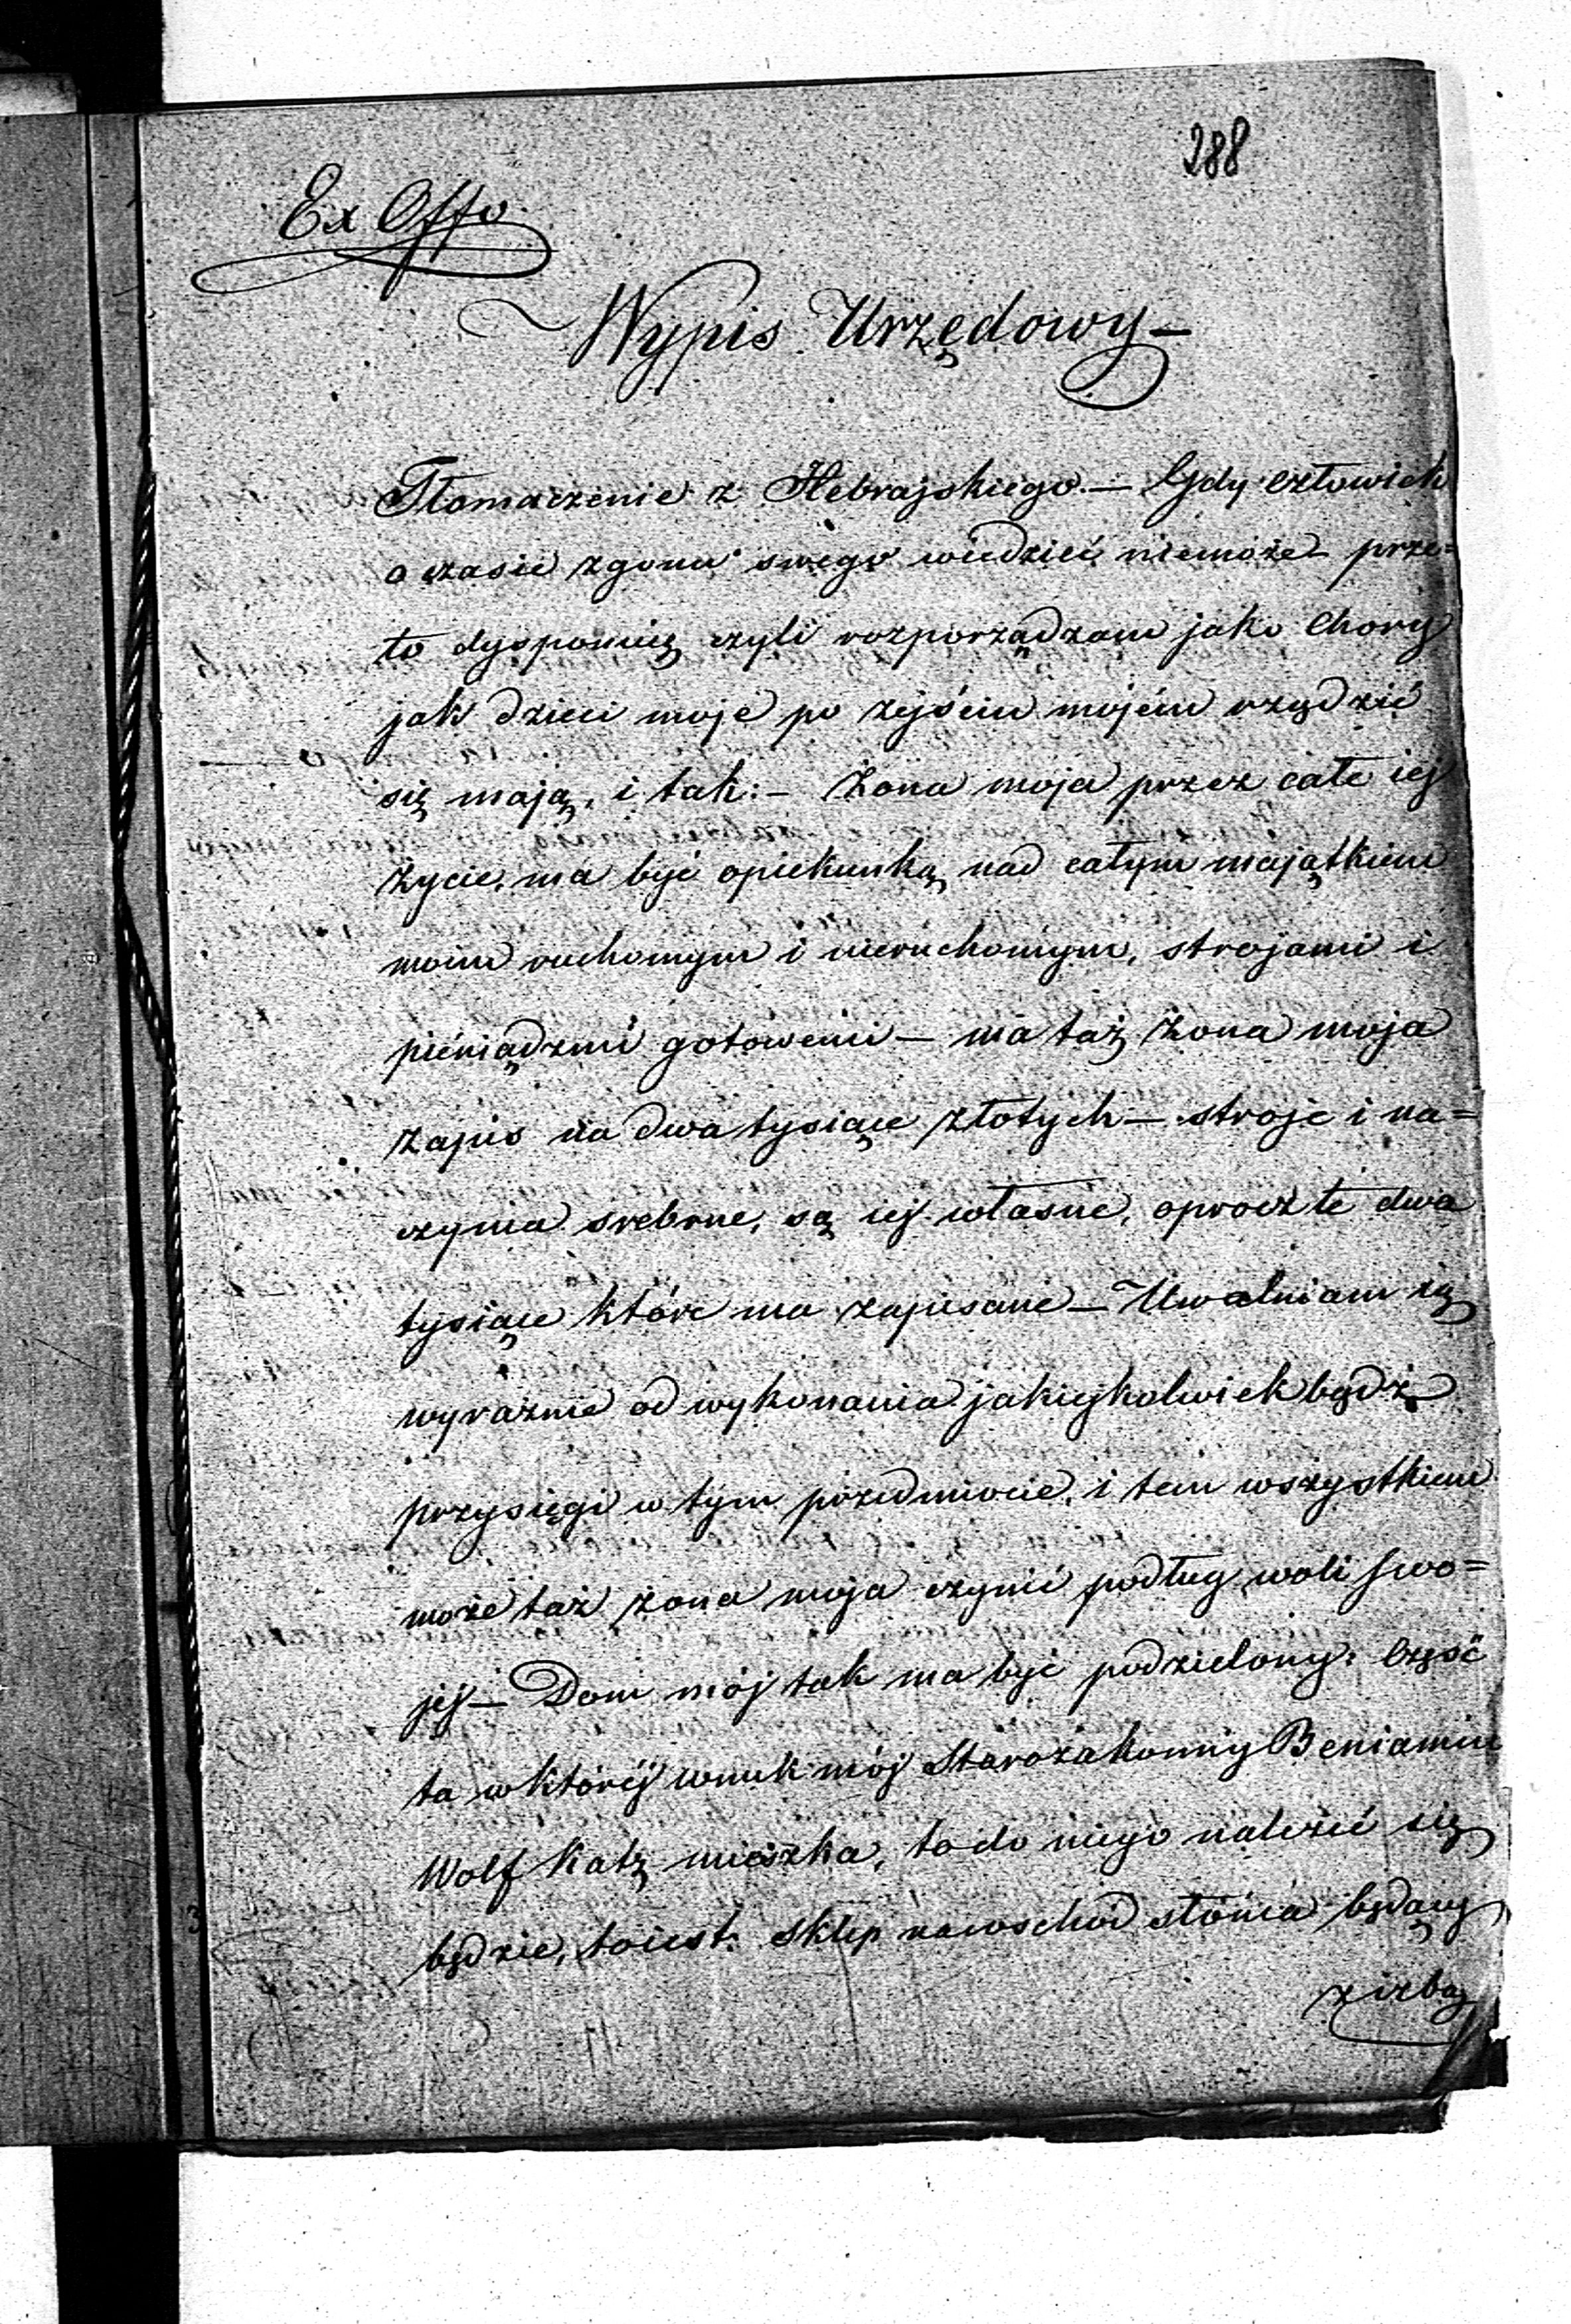 288
Ex Offo
Wypis Urzędowy —
Tłomaczenie z Hebrajskiego. — Gdy człowiek
o czasie zgonu swego wiedzieć niemoże — prze=
to dysponuię czyli rozporządzam jako Chory
jak dzieci moje po zejściu mojém rządzić
się mają, i tak: — Żona moja przez całe iej
życie, ma być opiekunką nad całym majątkiem
moim ruchomym i nieruchomym, strojami i
pieniądzmi gotowemi — ma taż Żona moja
zapis na dwa tysiące złotych — stroje i na=
czynia srebrne, są iej własne, oprócz te dwa
tysiące które ma zapisane — Uwalniam ią
wyraźnie od wykonania jakiejkolwiek bądź
przysięgi w tym przedmiocie, i tem wszystkiem
może taż żona moja czynić podług woli swo=
jej — Dom mój tak ma być podzielony: Część
ta w któréj wnuk mój Starozakonny Beniamin
Wolf Katz mieszka, to do niego należeć się
będzie, to iest: Sklep na wschód słońca będący
z izbą